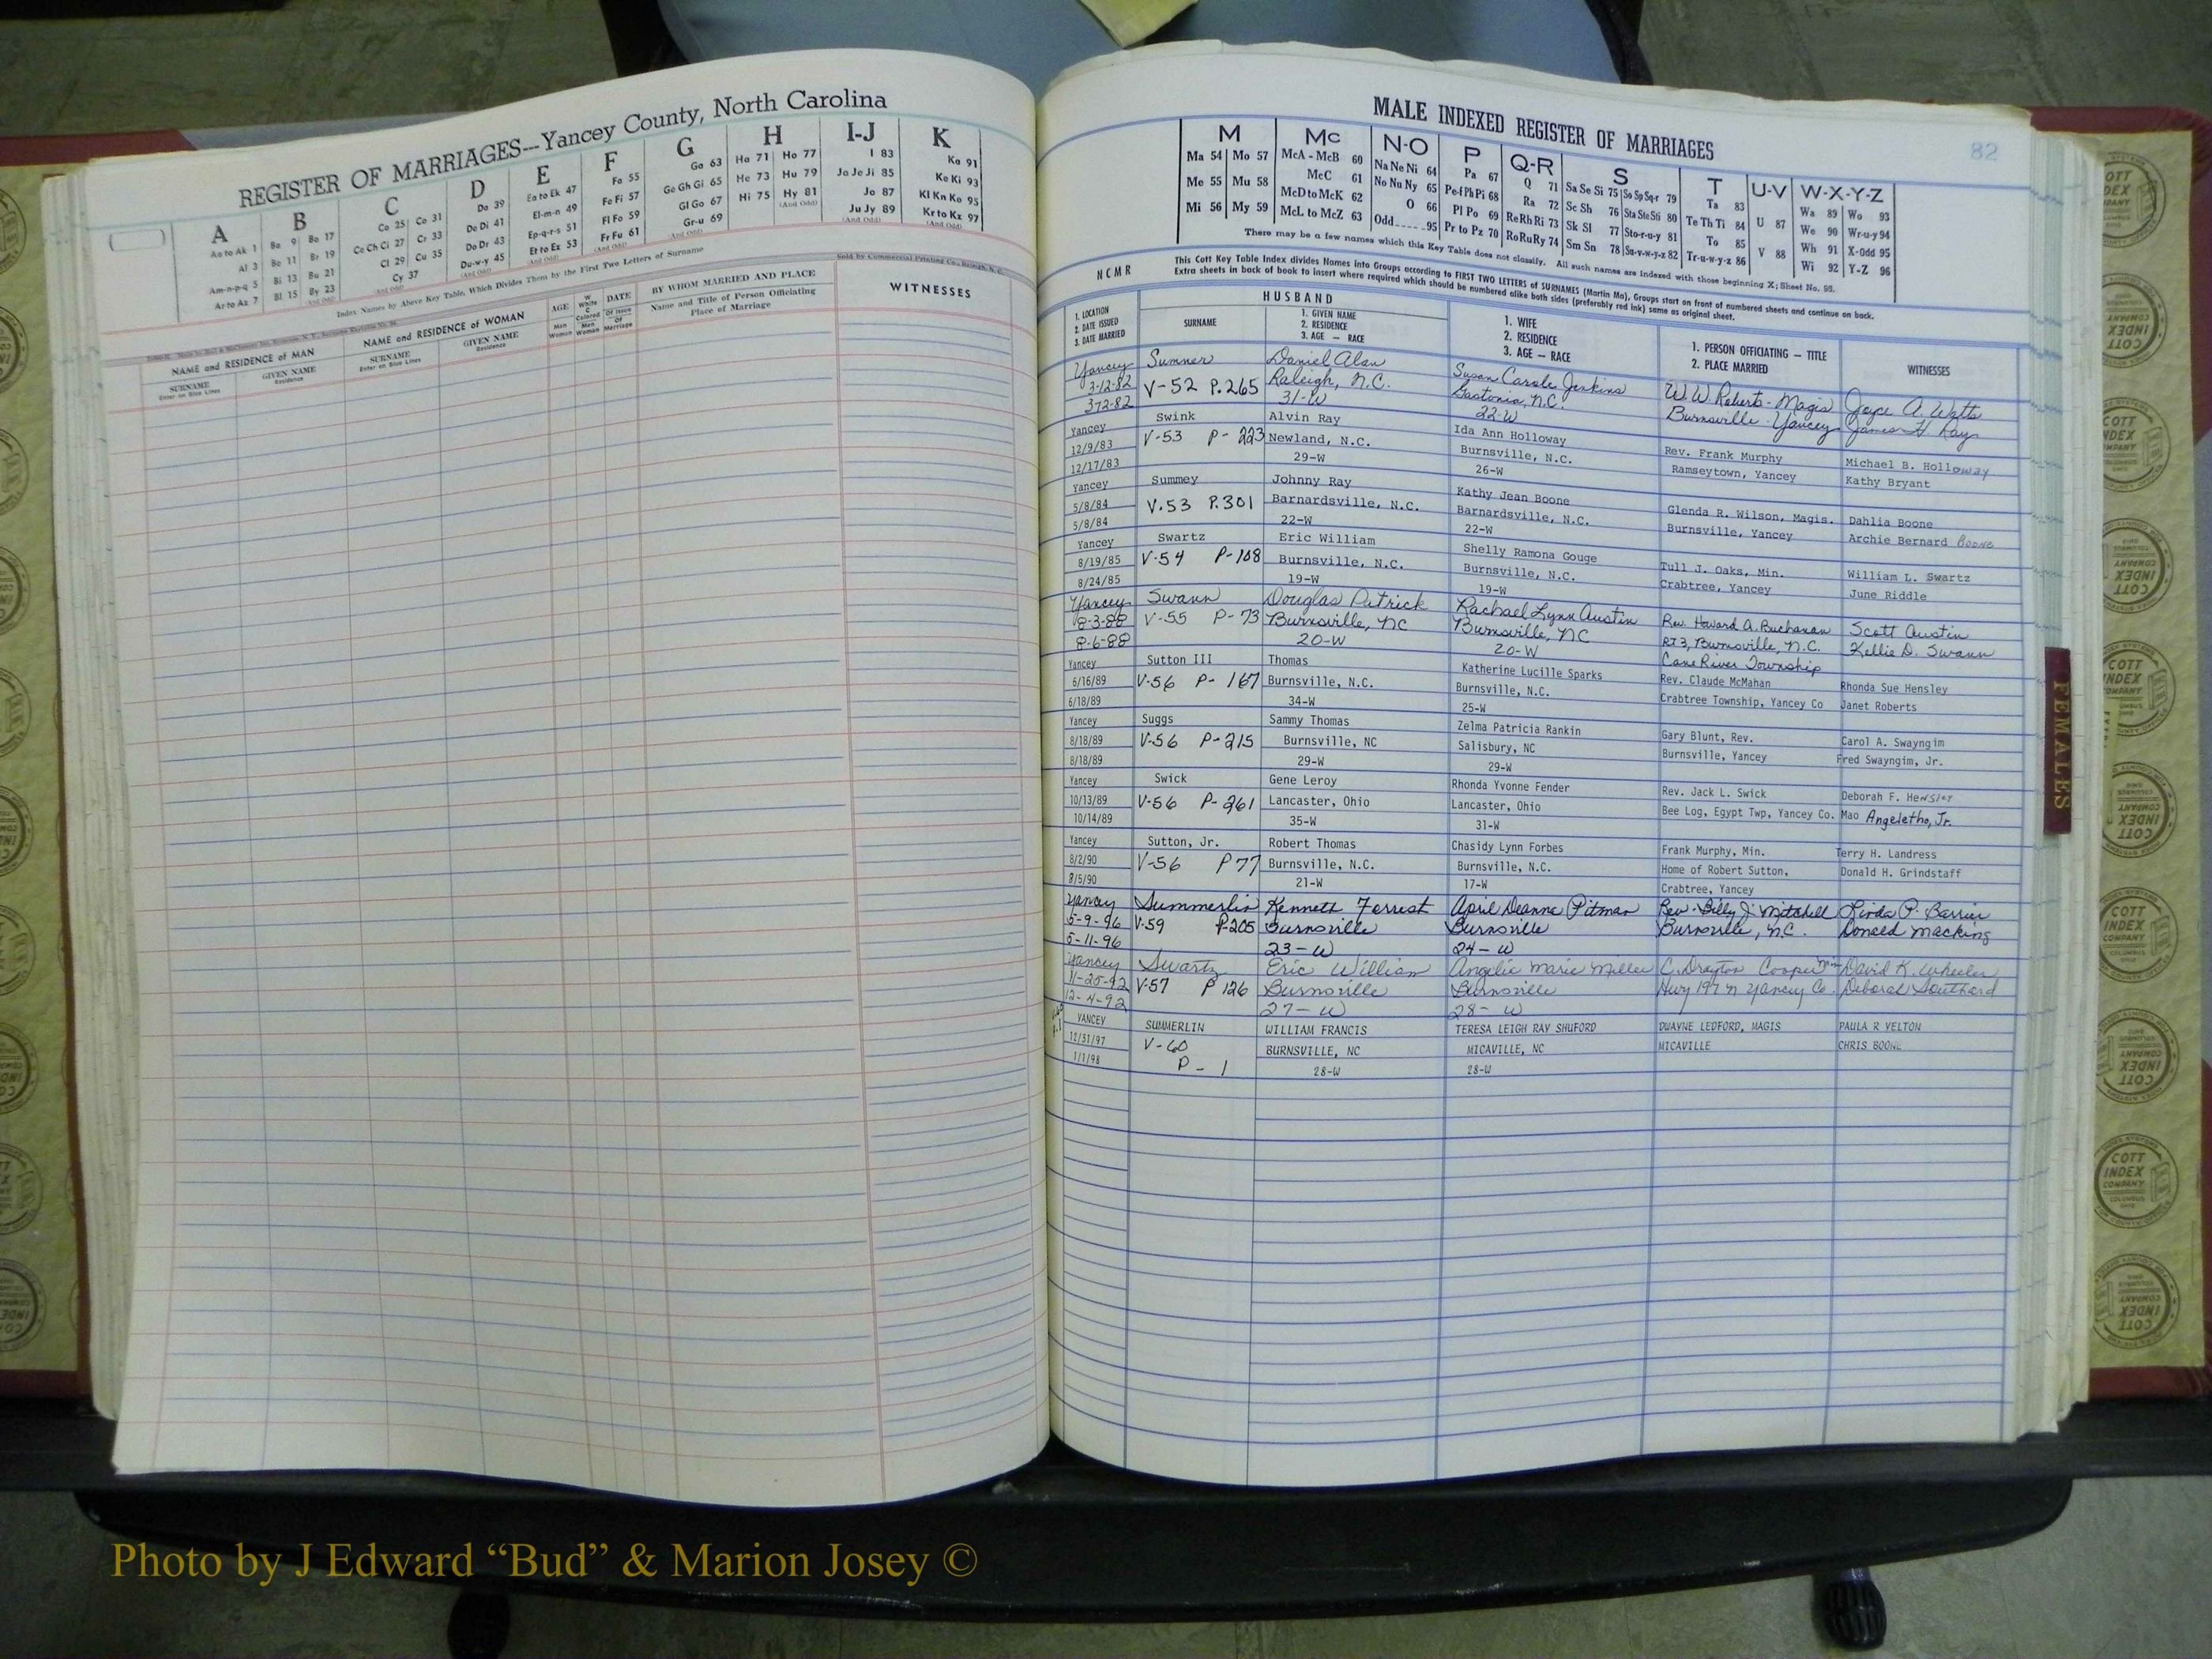 REGISTER OF MARRIAGES---Yancey County, North Carolina
A B C D E F G H I-J K
Aa to Ak 1
Al 3
Am-n-p-q 5
Ar to Az 7
Ba 9 Bo 17
Be 11 Br 19
Bi 13 Bu 21
Bl 15 By 23
Ca 25 Co 31
Ce Ch Ci 27 Cr 33
Cl 29 Cu 35
Cy 37
Da 39
De Di 41
Do Dr 43
Du-w-y 45
Ea to Ek 47
El-m-n 49
Ep-q-r-s 51
Et to Ez 53
Fa 55
Fe Fi 57
Fl Fo 59
Fr Fu 61
Ga 63
Ge Gh Gi 65
Gl Go 67
Gr-u 69
Ha 71 Ho 77
He 73 Hu 79
Hi 75 Hy 81
I 83
Ja Je Ji 85
Jo 87
Ju Jy 89
Ka 91
Ke Ki 93
Kl Kn Ko 95
Kr to Kz 97
Index Names by Above Key Table, Which Divides Them by the First Two Letters of Surname
Sold by Commercial Printing Co., Raleigh, N. C.
NAME and RESIDENCE of MAN
SURNAME
Enter on Blue Lines
GIVEN NAME
Residence
NAME and RESIDENCE of WOMAN
SURNAME
Enter on Blue Lines
GIVEN NAME
Residence
AGE
Man
Woman
W
White
C
Colored
Man
Woman
DATE
Of Issue
Of
Marriage
BY WHOM MARRIED AND PLACE
Name and Title of Person Officiating
Place of Marriage
WITNESSES
MALE INDEXED REGISTER OF MARRIAGES
82
M Mc N-O P Q-R S T U-V W-X-Y-Z
Ma 54 Mo 57
Me 55 Mu 58
Mi 56 My 59
McA - McB 60
McC 61
McD to McK 62
McL to McZ 63
Na Ne Ni 64
No Nu Ny 65
O 66
Odd 95
Pa 67
Pe-f Ph Pi 68
Pl Po 69
Pr to Pz 70
Q 71
Ra 72
Re Rh Ri 73
Ro Ru Ry 74
Sa Se Si 75 So Sp Sq-r 79
Sc Sh 76 Sta Ste Sti 80
Sk Sl 77 Sto-r-u-y 81
Sm Sn 78 Su-v-w-y-z 82
Ta 83
Te Th Ti 84
To 85
Tr-u-w-y-z 86
U 87
V 88
Wa 89 Wo 93
We 90 Wr-u-y 94
Wh 91 X-Odd 95
Wi 92 Y-Z 96
There may be a few names which this Key Table does not classify. All such names are indexed with those beginning X; Sheet No. 95.
NCMR
This Cott Key Table Index divides Names into Groups according to FIRST TWO LETTERS of SURNAMES (Martin Ma), Groups start on front of numbered sheets and continue on back.
Extra sheets in back of book to insert where required which should be numbered alike both sides (preferably red ink) same as original sheet.
1. LOCATION
2. DATE ISSUED
3. DATE MARRIED
HUSBAND
SURNAME
1. GIVEN NAME
2. RESIDENCE
3. AGE — RACE
1. WIFE
2. RESIDENCE
3. AGE — RACE
1. PERSON OFFICIATING — TITLE
2. PLACE MARRIED
WITNESSES
Yancey Sumner Daniel Alan Susan Carole Jenkins W.W. Roberts - Magis Joyce A. Watts
3-12-82 V-52 P.265 Raleigh, N.C. Gastonia, N.C. Burnsville - Yancey James H. Ray
3-12-82 31-W 22-W
Yancey Swink Alvin Ray Ida Ann Holloway Rev. Frank Murphy Michael B. Holloway
12/9/83 V-53 P-223 Newland, N.C. Burnsville, N.C. Ramseytown, Yancey Kathy Bryant
12/17/83 29-W 26-W
Yancey Summey Johnny Ray Kathy Jean Boone Glenda R. Wilson, Magis. Dahlia Boone
5/8/84 V.53 P.301 Barnardsville, N.C. Barnardsville, N.C. Burnsville, Yancey Archie Bernard Boone
5/8/84 22-W 22-W
Yancey Swartz Eric William Shelly Ramona Gouge Tull J. Oaks, Min. William L. Swartz
8/19/85 V-54 P-108 Burnsville, N.C. Burnsville, N.C. Crabtree, Yancey June Riddle
8/24/85 19-W 19-W
Yancey Swann Douglas Patrick Rachael Lynn Austin Rev. Howard A. Buchanan Scott Austin
8-3-88 V-55 P-73 Burnsville, NC Burnsville, NC RT 3, Burnsville, N.C. Kellie D. Swann
8-6-88 20-W 20-W Cane River Township
Yancey Sutton III Thomas Katherine Lucille Sparks Rev. Claude McMahan Rhonda Sue Hensley
6/16/89 V-56 P-167 Burnsville, N.C. Burnsville, N.C. Crabtree Township, Yancey Co Janet Roberts
6/18/89 34-W 25-W
Yancey Suggs Sammy Thomas Zelma Patricia Rankin Gary Blunt, Rev. Carol A. Swayngim
8/18/89 V-56 P-215 Burnsville, NC Salisbury, NC Burnsville, Yancey Fred Swayngim, Jr.
8/18/89 29-W 29-W
Yancey Swick Gene Leroy Rhonda Yvonne Fender Rev. Jack L. Swick Deborah F. Hensley
10/13/89 V-56 P-261 Lancaster, Ohio Lancaster, Ohio Bee Log, Egypt Twp, Yancey Co. Mao Angeletho, Jr.
10/14/89 35-W 31-W
Yancey Sutton, Jr. Robert Thomas Chasidy Lynn Forbes Frank Murphy, Min. Terry H. Landress
8/2/90 V-56 P 77 Burnsville, N.C. Burnsville, N.C. Home of Robert Sutton, Donald H. Grindstaff
8/5/90 21-W 17-W Crabtree, Yancey
Yancey Summerlin Kenneth Forrest April Deanna Pitman Rev. Billy J. Mitchell Linda P. Barrier
5-9-96 V-59 P-205 Burnsville Burnsville Burnsville, N.C. Donald Macking
5-11-96 23-W 24-W
Yancey Swartz Eric William Angelic Marie Miller C. Drayton Cooper Min David K. Wheeler
11-25-92 V-57 P 126 Burnsville Burnsville Hwy 197 N Yancey Co. Deborah Southard
12-4-92 27-W 28-W
YANCEY SUMMERLIN WILLIAM FRANCIS TERESA LEIGH RAY SHUFORD DWAYNE LEDFORD, MAGIS PAULA R YELTON
12/31/97 V-60 BURNSVILLE, NC MICAVILLE, NC MICAVILLE CHRIS BOONE
1/1/98 P-1 28-W 28-W
FEMALES
COTT
INDEX
COMPANY
Photo by J Edward “Bud” & Marion Josey ©